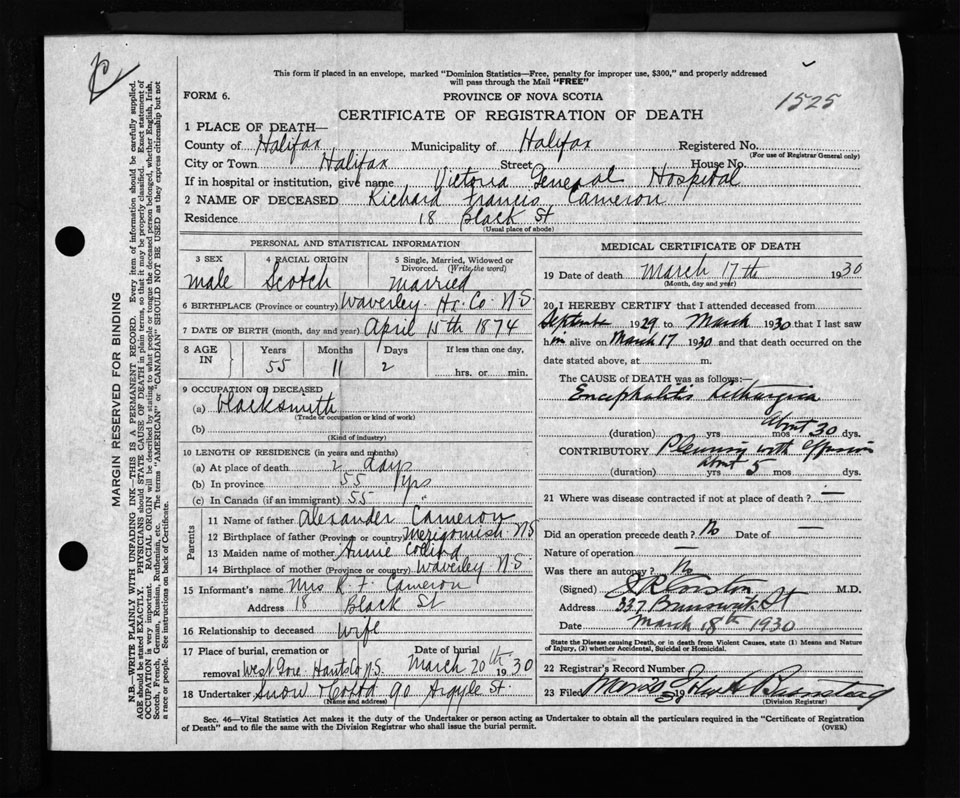 This form if placed in an envelope, marked "Dominion Statistics—Free, penalty for improper use, $300," and properly addressed
will pass through the Mail "FREE"
FORM 6.
PROVINCE OF NOVA SCOTIA
1525
CERTIFICATE OF REGISTRATION OF DEATH
1 PLACE OF DEATH—
County of Halifax Municipality of Halifax Registered No.
(For use of Registrar General only)
City or Town Halifax Street House No.
If in hospital or institution, give name Victoria General Hospital
2 NAME OF DECEASED Richard Francis Cameron
Residence 18 Black St
(Usual place of abode)
PERSONAL AND STATISTICAL INFORMATION
3 SEX 4 RACIAL ORIGIN 5 Single, Married, Widowed or
Divorced. (Write the word)
male Scotch Married
6 BIRTHPLACE (Province or country) Waverley Hx. Co. N.S.
7 DATE OF BIRTH (month, day and year) April 15th 1874
8 AGE IN Years Months Days If less than one day,
55 11 2 hrs. or min.
9 OCCUPATION OF DECEASED
(a) blacksmith
(Trade or occupation or kind of work)
(b)
(Kind of industry)
10 LENGTH OF RESIDENCE (in years and months)
(a) At place of death 2 days
(b) In province 55 yrs
(c) In Canada (if an immigrant) 55 "
Parents
11 Name of father Alexander Cameron
12 Birthplace of father (Province or country) Merigomish N S
13 Maiden name of mother Annie
14 Birthplace of mother (Province or country) Waverley N.S.
15 Informant's name Mrs R. F. Cameron
Address 18 Black St
16 Relationship to deceased wife
17 Place of burial, cremation or Date of burial
removal West Gore Hants Co N.S. March 20th 1930
18 Undertaker Snow & Co Ltd 90 Argyle St.
(Name and address)
MEDICAL CERTIFICATE OF DEATH
19 Date of death March 17th 1930
(Month, day and year)
20 I HEREBY CERTIFY that I attended deceased from
September 1929 to March 1930 that I last saw
him alive on March 17 1930 and that death occurred on the
date stated above, at m.
The CAUSE OF DEATH was as follows:
Encephalitis Lethargica
(duration) yrs mos About 30 dys.
CONTRIBUTORY Pleurisy with effusion
(duration) yrs About 5 mos dys.
21 Where was disease contracted if not at place of death? —
Did an operation precede death? No Date of —
Nature of operation —
Was there an autopsy? No
(Signed) M.D.
Address 337 Brunswick St
Date March 18th 1930
State the Disease causing Death, or in death from Violent Causes, state (1) Means and Nature
of Injury, (2) whether Accidental, Suicidal or Homicidal.
22 Registrar's Record Number
23 Filed 19
(Division Registrar)
Sec. 46—Vital Statistics Act makes it the duty of the Undertaker or person acting as Undertaker to obtain all the particulars required in the "Certificate of Registration
of Death" and to file the same with the Division Registrar who shall issue the burial permit.
(OVER)
MARGIN RESERVED FOR BINDING
N.B.—WRITE PLAINLY WITH UNFADING INK—THIS IS A PERMANENT RECORD. Every item of information should be carefully supplied.
AGE should be stated EXACTLY. PHYSICIANS should STATE CAUSE OF DEATH in plain terms, so that it may be properly classified. Exact statement of
OCCUPATION is very important. RACIAL ORIGIN will be described by stating to what people or tongue the deceased person belonged, whether English, Irish,
Scotch, French, German, Russian, Ruthenian, etc. The terms "AMERICAN" or "CANADIAN" SHOULD NOT BE USED as they express citizenship but not
a race or people. See instructions on back of Certificate.